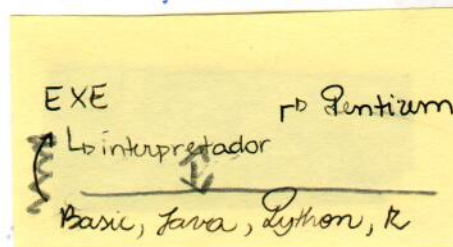 EXE ↱ Pentium
↳ interpretador
Basic, Java, Python, R